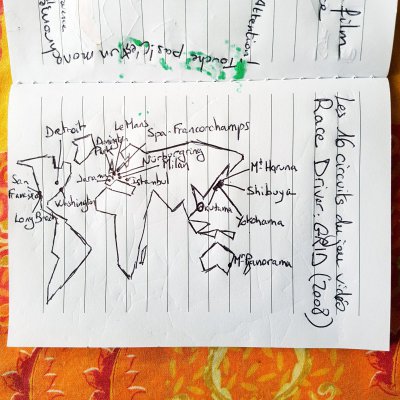 Les 16 circuits du jeu vidéo
Race Driver: GRID (2008)
Detroit
Le Mans
Donington
Park
Spa-Francorchamps
Nürburgring
Milan
Jarama
Istanbul
San
Francisco
Long Beach
Washington
Mt Haruna
Shibuya
Okutama
Yokohama
Mt Panorama
Attention!
Touche pas
film